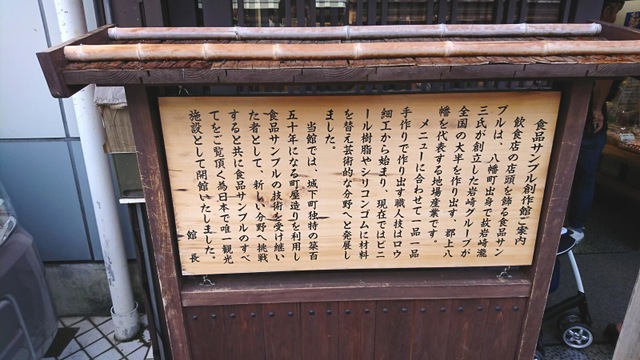 食品サンプル創作館ご案内
飲食店の店頭を飾る食品サン
プルは、八幡町出身で故岩崎瀧
三氏が創立した岩崎グループが
全国の大半を作り出す、郡上八
幡を代表する地場産業です。
メニューに合わせて一品一品
手作りで作り出す職人技はロウ
細工から始まり、現在ではビニ
ール樹脂やシリコンゴムに材料
を替え芸術的な分野へと発展し
ました。
当館では、城下町独特の築百
五十年になる町屋造りを利用し
食品サンプルの技術を受け継い
だ者として、新しい分野へ挑戦
すると共に食品サンプルのすべ
てをご覧頂く為日本で唯一観光
施設として開館いたしました。
館長